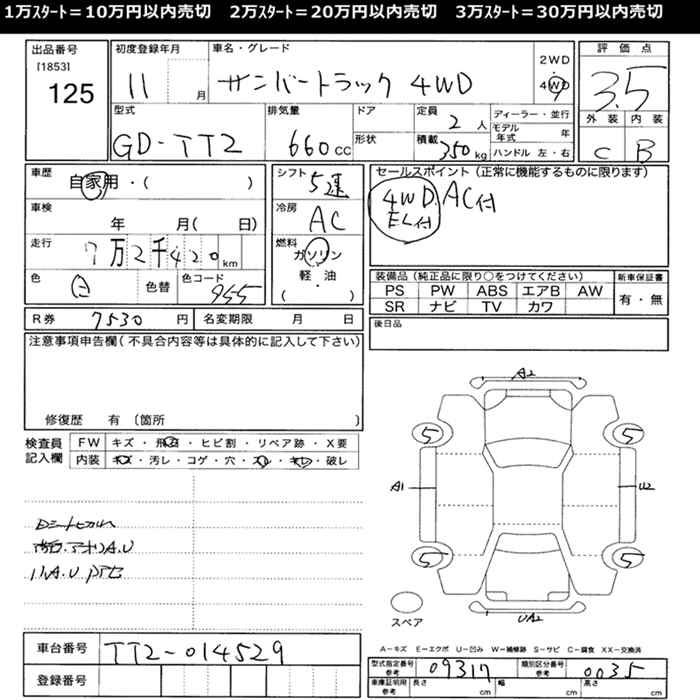 1万ｽﾀｰﾄ＝10万円以内売切　2万ｽﾀｰﾄ＝20万円以内売切　3万ｽﾀｰﾄ＝30万円以内売切
出品番号
[1853]
125
初度登録年月
11 月
車名・グレード
サンバートラック 4WD
2WD
4WD
評価点
3.5
外装 内装
C B
型式
GD-TT2
排気量
660 CC
ドア
形状
定員
2 人
積載
350 kg
ディーラー・並行
モデル年式 年
ハンドル 左・右
車歴
自家用・( )
シフト
5速
セールスポイント (正常に機能するものに限ります)
4WD. AC付
EL付
車検
年 月( 日)
冷房
AC
走行
7万2千420 km
燃料
ガソリン
軽・油
( )
色
白
色替
色コード
955
装備品 (純正品に限り○をつけてください)
PS PW ABS エアB AW
SR ナビ TV カワ
新車保証書
有・無
R券 7530 円
名変期限 月 日
後日品
注意事項申告欄 (不具合内容等は具体的に記入して下さい)
修復歴 有 (箇所 )
検査員記入欄
FW キズ・飛石・ヒビ割・リペア跡・X要
内装 キズ・汚レ・コゲ・穴・スレ・キレ・破レ
A2
5 5
A1 U2
5 5
UA2
スペア
A－キズ E－エクボ U－凹み W－補修跡 S－サビ C－腐食 XX－交換済
車台番号 TT2-014529
登録番号
型式指定番号 参考 09317
類別区分番号 参考 0035
車庫証明用 参考 長さ cm 幅 cm 高さ cm